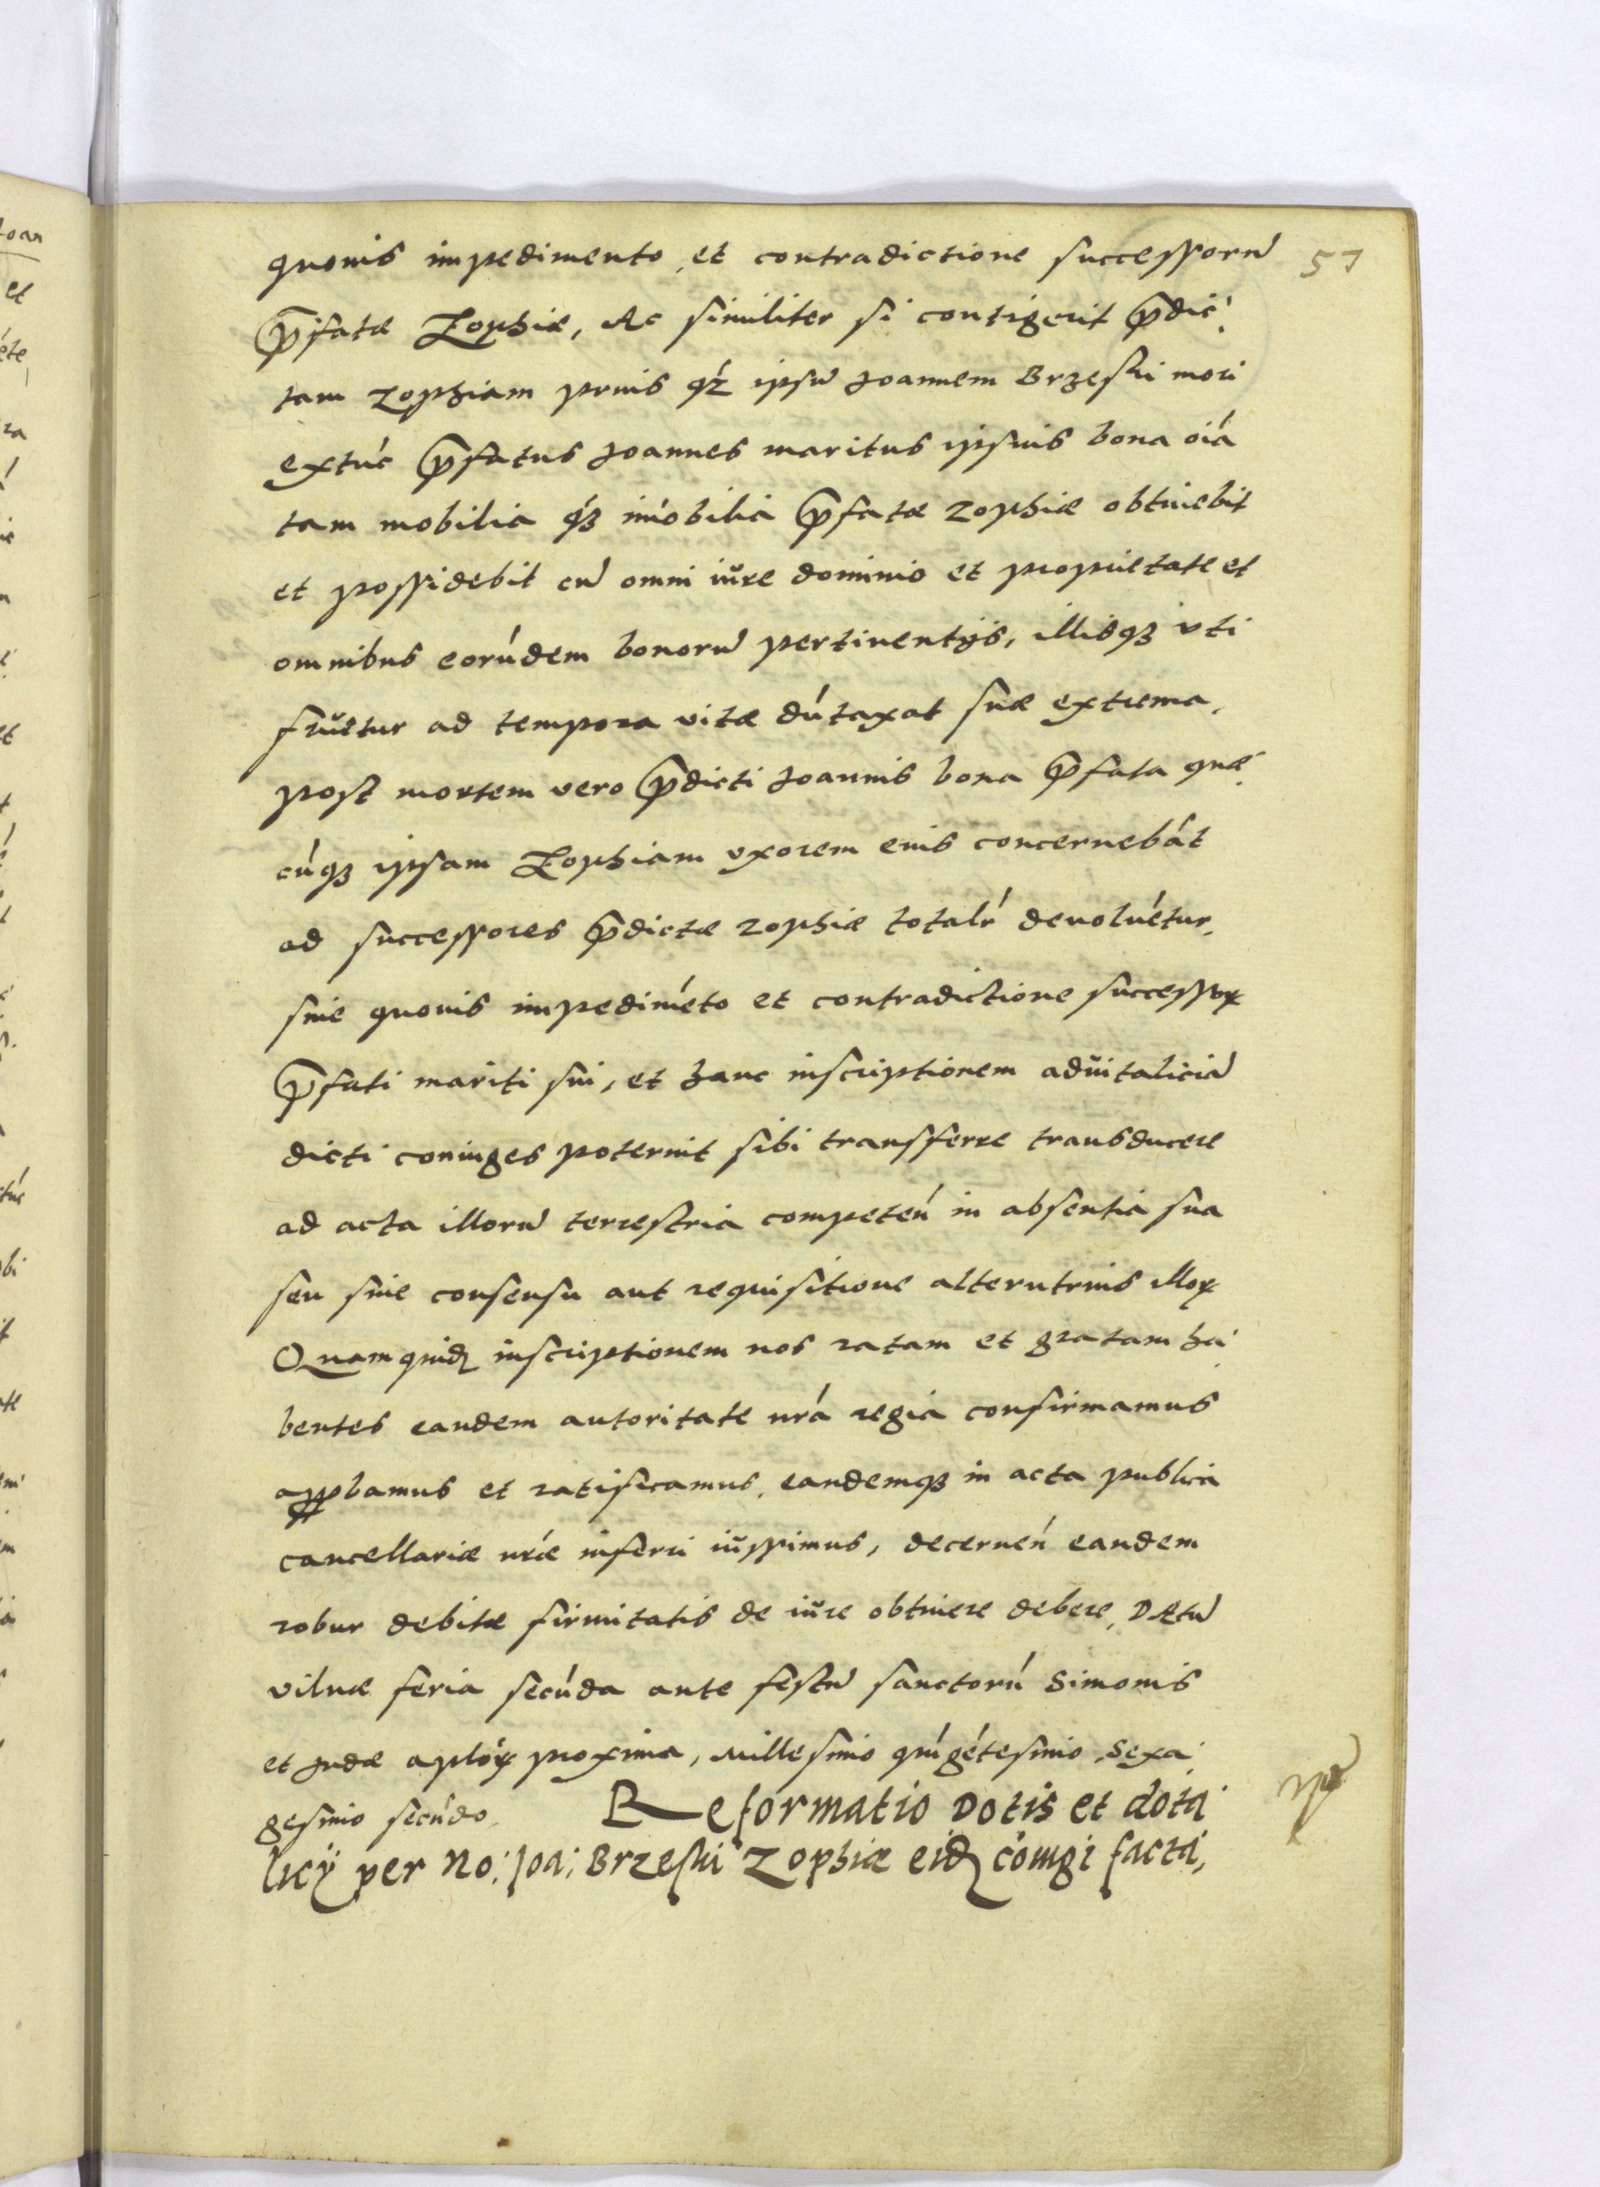 quouis impedimento et contradictione successorũ 57
p̃fatæ Zophiæ, Ac similiter si contigerit p̃dic:
tam Zophiam prius q́ꝫ ipsũ Joannem Brzeski mori
extúc p̃fatus Joannes maritus ipsius bona oı́a
tam mobilia q́ꝫ im̃obilia p̃fatæ Zophiæ obtinebit
et possidebit cũ omni iŭre dominio et proprietate et
omnibus eorúdem bonorũ pertinentijs, illisqꝫ vti
frŭetur ad tempora vitæ dútaxat suæ extrema,
post mortem vero p̃dicti Joannis bona p̃fata quæ:
cúqꝫ ipsam Zophiam vxorem eius concernebát
ad successores p̃dictæ Zophiæ totalr̃ deuoluétur,
sine quouis impedimẽto et contradictione successoꝝ
p̃fati mariti sui, et hanc inscriptionem adŭitaliciã
dicti coniuges poterint sibi transferre transducere
ad acta illorũ terrestria competeń in absentia sua
seu sine consensu aut requisitione alterutrius illoꝝ
Quam quidẽ inscriptionem nos ratam et gratam ha:
bentes eandem autoritate nrá regia confirmamus
approbamus et ratificamus, eandemqꝫ in acta publica
cancellariæ nrǽ inferri iŭssimus, decerneń eandem
robur debitæ firmitatis de iŭre obtinere debere, Datũ
vilnæ feria secúda ante festũ sanctorú Simonis
et Judæ aplóꝝ proxima, Millesimo quı́gétesimo Sexa:
gesimo secúdo,
Reformatio Dotis et dota:
licÿ per No: Joa: Brzeski Zophiæ eidẽ cóiugi facta,